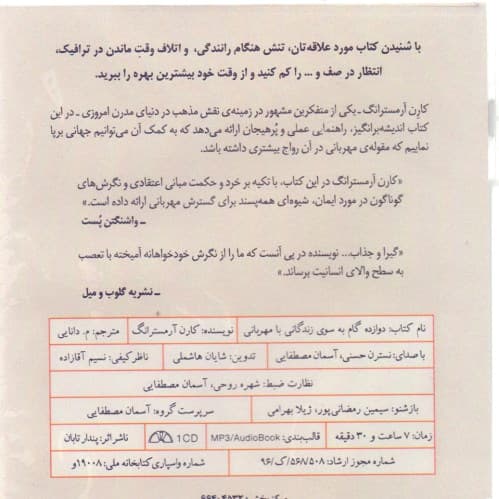 با شنیدن کتاب مورد علاقه‌تان، تنش هنگام رانندگی، و اتلاف وقتِ ماندن در ترافیک،
انتظار در صف و ... را کم کنید و از وقت خود بیشترین بهره را ببرید.
کارن آرمسترانگ ـ یکی از متفکرین مشهور در زمینه‌ی نقش مذهب در دنیای مدرن امروزی ـ در این
کتاب اندیشه‌برانگیز، راهنمایی عملی و پُرهیجان ارائه می‌دهد که به کمک آن می‌توانیم جهانی برپا
نماییم که مقوله‌ی مهربانی در آن رواج بیشتری داشته باشد.
«کارن آرمسترانگ در این کتاب، با تکیه بر خرد و حکمت مبانی اعتقادی و نگرش‌های
گوناگون در مورد ایمان، شیوه‌ای همه‌پسند برای گسترش مهربانی ارائه داده است.»
ـ واشنگتن پُست
«گیرا و جذاب... نویسنده در پی آنست که ما را از نگرش خودخواهانه آمیخته با تعصب
به سطح والای انسانیت برساند.»
ـ نشریه گلوب و میل
نام کتاب: دوازده گام به سوی زندگانی با مهربانی نویسنده: کارن آرمسترانگ مترجم: م. دانایی
با صدای: نسترن حسنی، آسمان مصطفایی تدوین: شایان هاشملی ناظر کیفی: نسیم آقازاده
نظارت ضبط: شهره روحی، آسمان مصطفایی
بازشنو: سیمین رمضانی‌پور، ژیلا بهرامی سرپرست گروه: آسمان مصطفایی
زمان: ۷ ساعت و ۳۰ دقیقه قالب‌بندی: MP3/AudioBook 1CD ناشر اثر: پندار تابان
شماره مجوز ارشاد: ۵۶۸/۵۰۸/ک/۹۶ شماره واسپاری کتابخانه ملی: ۱۹۰۰۸و